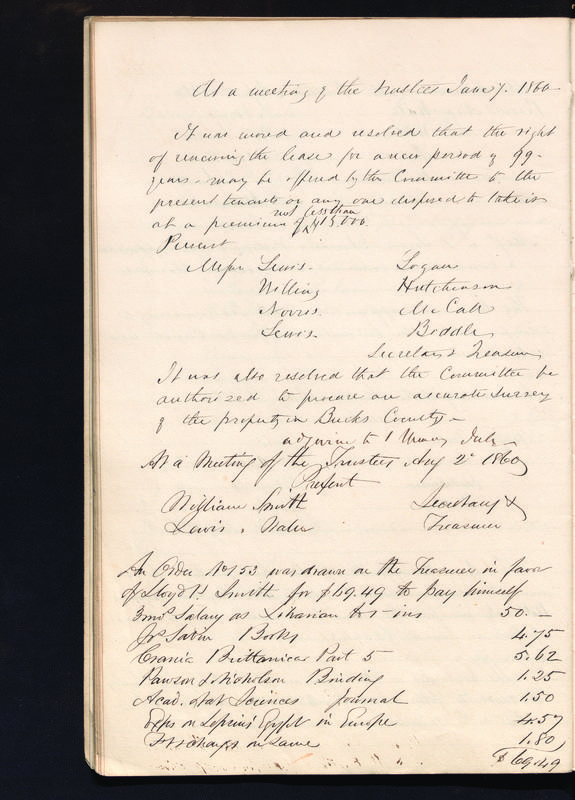 At a meeting of the trustees June 7. 1860
It was moved and resolved that the right
of renewing the lease for a new period of 99-
years - may be offered by the Committee to the
present tenants or any one disposed to take it
not less than
at a premium of $15,000.
Present
Messrs Lewis. Logan
Willing Hutchinson
Norris. McCall
Lewis. Biddle
Secretary & Treasurer
It was also resolved that the Committee be
authorized to procure an accurate survey
of the property in Bucks County -
adjourn to 1 Thursday July -
At a Meeting of the Trustees Aug 2d 1860
Present
William Smith Secretary &
Lewis. Treasurer
An Order No 153 was drawn on the Treasurer in favor
of Lloyd P. Smith for $69.49 to pay himself
3 mos Salary as Librarian to ins 50. -
Books 4.75
Crania Brittanica Part 5 5.62
Pawson & Nicholson Binding 1.25
Acad. of Nat Sciences Journal 1.50
Exps on Lepsius' Egypt in Europe 4.57
Frt & charges on same 1.80
$69.49